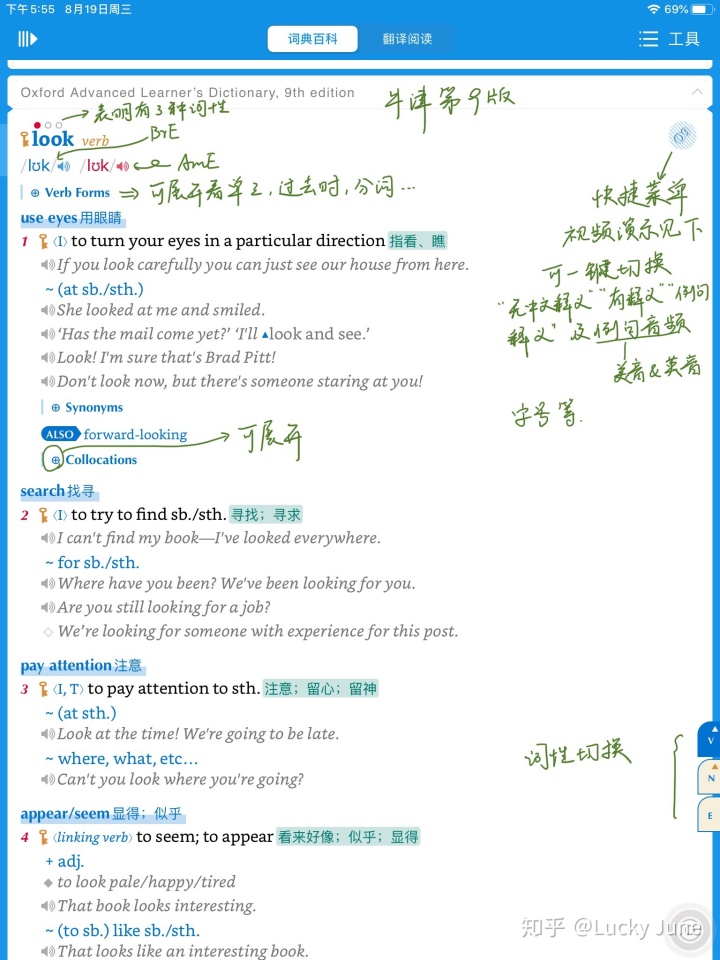 下午5:55 8月19日周三
69%
词典百科 翻译阅读 工具
Oxford Advanced Learner's Dictionary, 9th edition
牛津第9版
表明有3种词性
look verb
BrE
/lʊk/ /lʊk/ AmE
⊕ Verb Forms ⇒ 可展开看单三,过去时,分词...
O9
快捷菜单
视频演示见下
可一键切换
"无中文释义""有释义""例句
释义"及例句音频
美音&英音
字号等.
use eyes 用眼睛
1 〈I〉 to turn your eyes in a particular direction 指看、瞧
If you look carefully you can just see our house from here.
~ (at sb./sth.)
She looked at me and smiled.
‘Has the mail come yet?’ ‘I'll ▲look and see.’
Look! I'm sure that's Brad Pitt!
Don't look now, but there's someone staring at you!
⊕ Synonyms
ALSO forward-looking
可展开
⊕ Collocations
search 找寻
2 〈I〉 to try to find sb./sth. 寻找；寻求
I can't find my book—I've looked everywhere.
~ for sb./sth.
Where have you been? We've been looking for you.
Are you still looking for a job?
◇ We're looking for someone with experience for this post.
pay attention 注意
3 〈I, T〉 to pay attention to sth. 注意；留心；留神
~ (at sth.)
Look at the time! We're going to be late.
~ where, what, etc…
Can't you look where you're going?
词性切换
V
N
E
appear/seem 显得；似乎
4 〈linking verb〉 to seem; to appear 看来好像；似乎；显得
+ adj.
◆ to look pale/happy/tired
That book looks interesting.
~ (to sb.) like sb./sth.
That looks like an interesting book.
知乎 @Lucky June